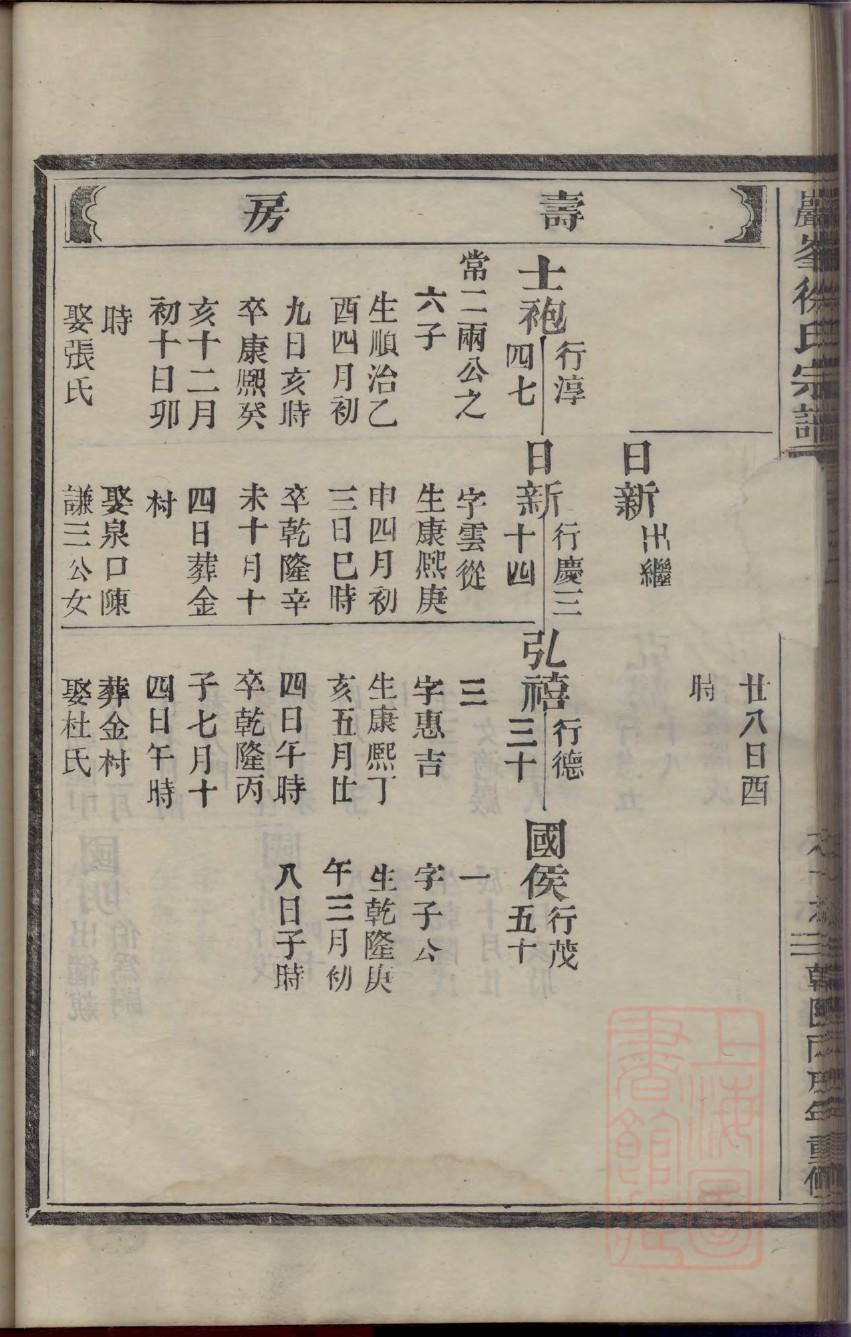 巖峯徐氏宗譜
壽房
廿八日酉
時
日新出繼
士袍行淳
四七
常二兩公之
六子
生順治乙
酉四月初
九日亥時
卒康熈癸
亥十二月
初十日卯
時
娶張氏
日新行慶三
十四
字雲從
生康熈庚
申四月初
三日巳時
卒乾隆辛
未十月十
四日葬金
村
娶泉口陳
謙三公女
弘禧行德
三十
三
字惠吉
生康熈丁
亥五月廿
四日午時
卒乾隆丙
子七月十
四日午時
葬金村
娶杜氏
國侯行茂
五十
一
字子公
生乾隆庚
午三月初
八日子時
上海圖
書館藏